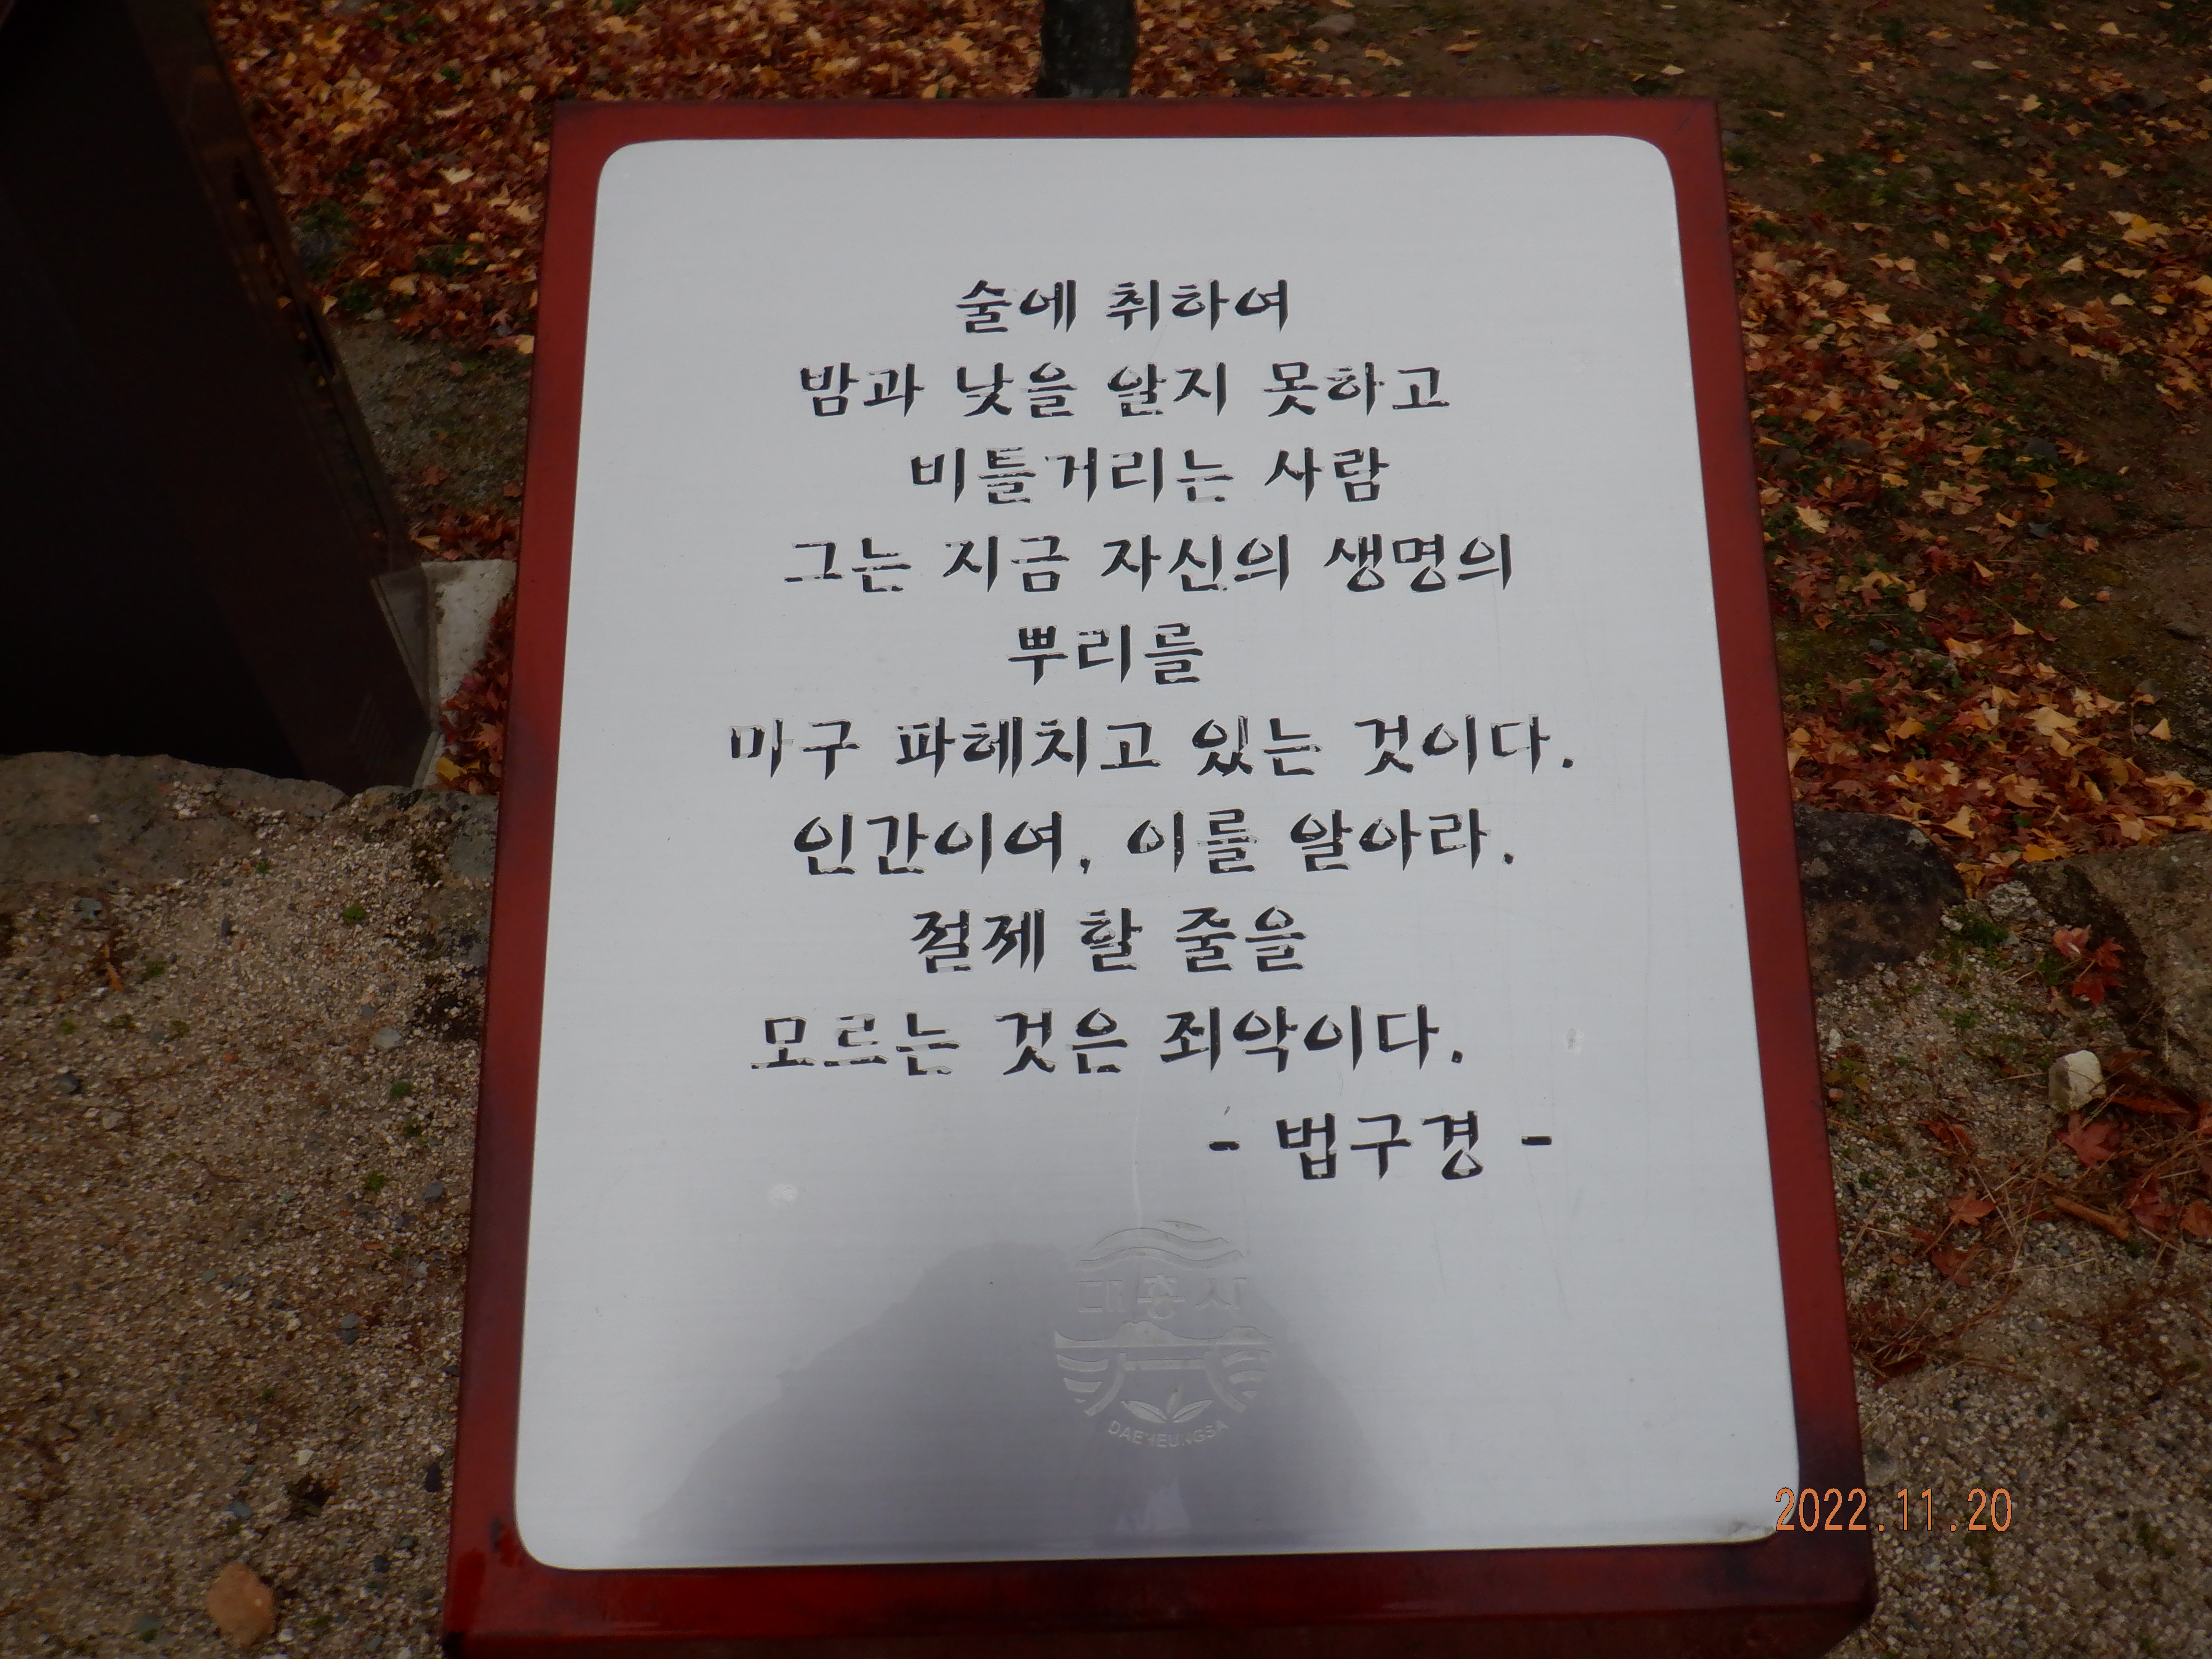 술에 취하여
밤과 낮을 알지 못하고
비틀거리는 사람
그는 지금 자신의 생명의
뿌리를
마구 파헤치고 있는 것이다.
인간이여, 이를 알아라.
절제 할 줄을
모르는 것은 죄악이다.
- 법구경 -
대흥사
DAEHEUNGSA
2022.11.20